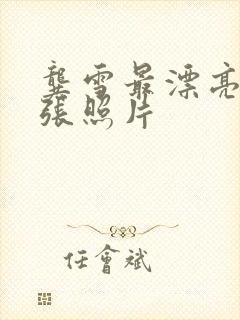 龔雪最漂亮
張照片
任會斌